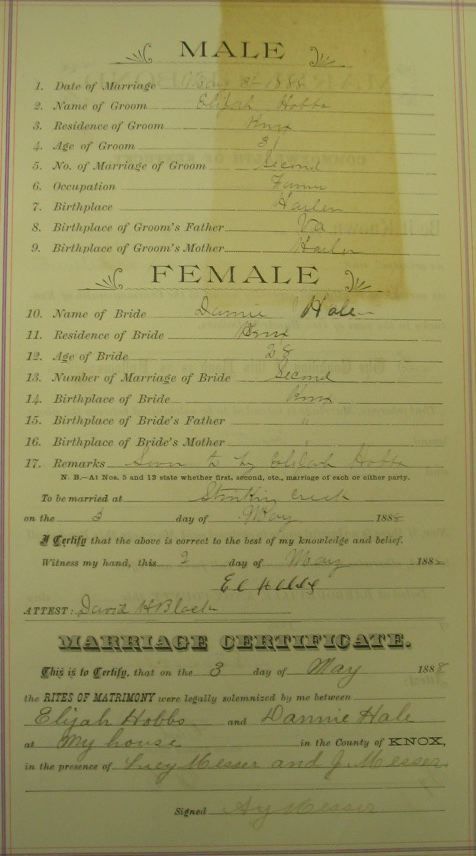 MALE
1. Date of Marriage 1888
2. Name of Groom Elijah Hobbs
3. Residence of Groom Knox
4. Age of Groom 31
5. No. of Marriage of Groom Second
6. Occupation Farmer
7. Birthplace Harlen
8. Birthplace of Groom's Father Va
9. Birthplace of Groom's Mother Harlen
FEMALE
10. Name of Bride Dannie Hale
11. Residence of Bride Knox
12. Age of Bride 28
13. Number of Marriage of Bride Second
14. Birthplace of Bride Knox
15. Birthplace of Bride's Father "
16. Birthplace of Bride's Mother
17. Remarks Sworn to by Elijah Hobbs
N. B.—At Nos. 5 and 13 state whether first, second, etc., marriage of each or either party.
To be married at Stinking Creek
on the 3 day of May 1888
I Certify that the above is correct to the best of my knowledge and belief.
Witness my hand, this 2 day of May 188
ATTEST: David H Black
MARRIAGE CERTIFICATE.
This is to Certify, that on the 3 day of May 1888
the RITES OF MATRIMONY were legally solemnized by me between
Elijah Hobbs and Dannie Hale
at My house in the County of KNOX,
in the presence of Lucy Messer and J Messer
Signed Messer